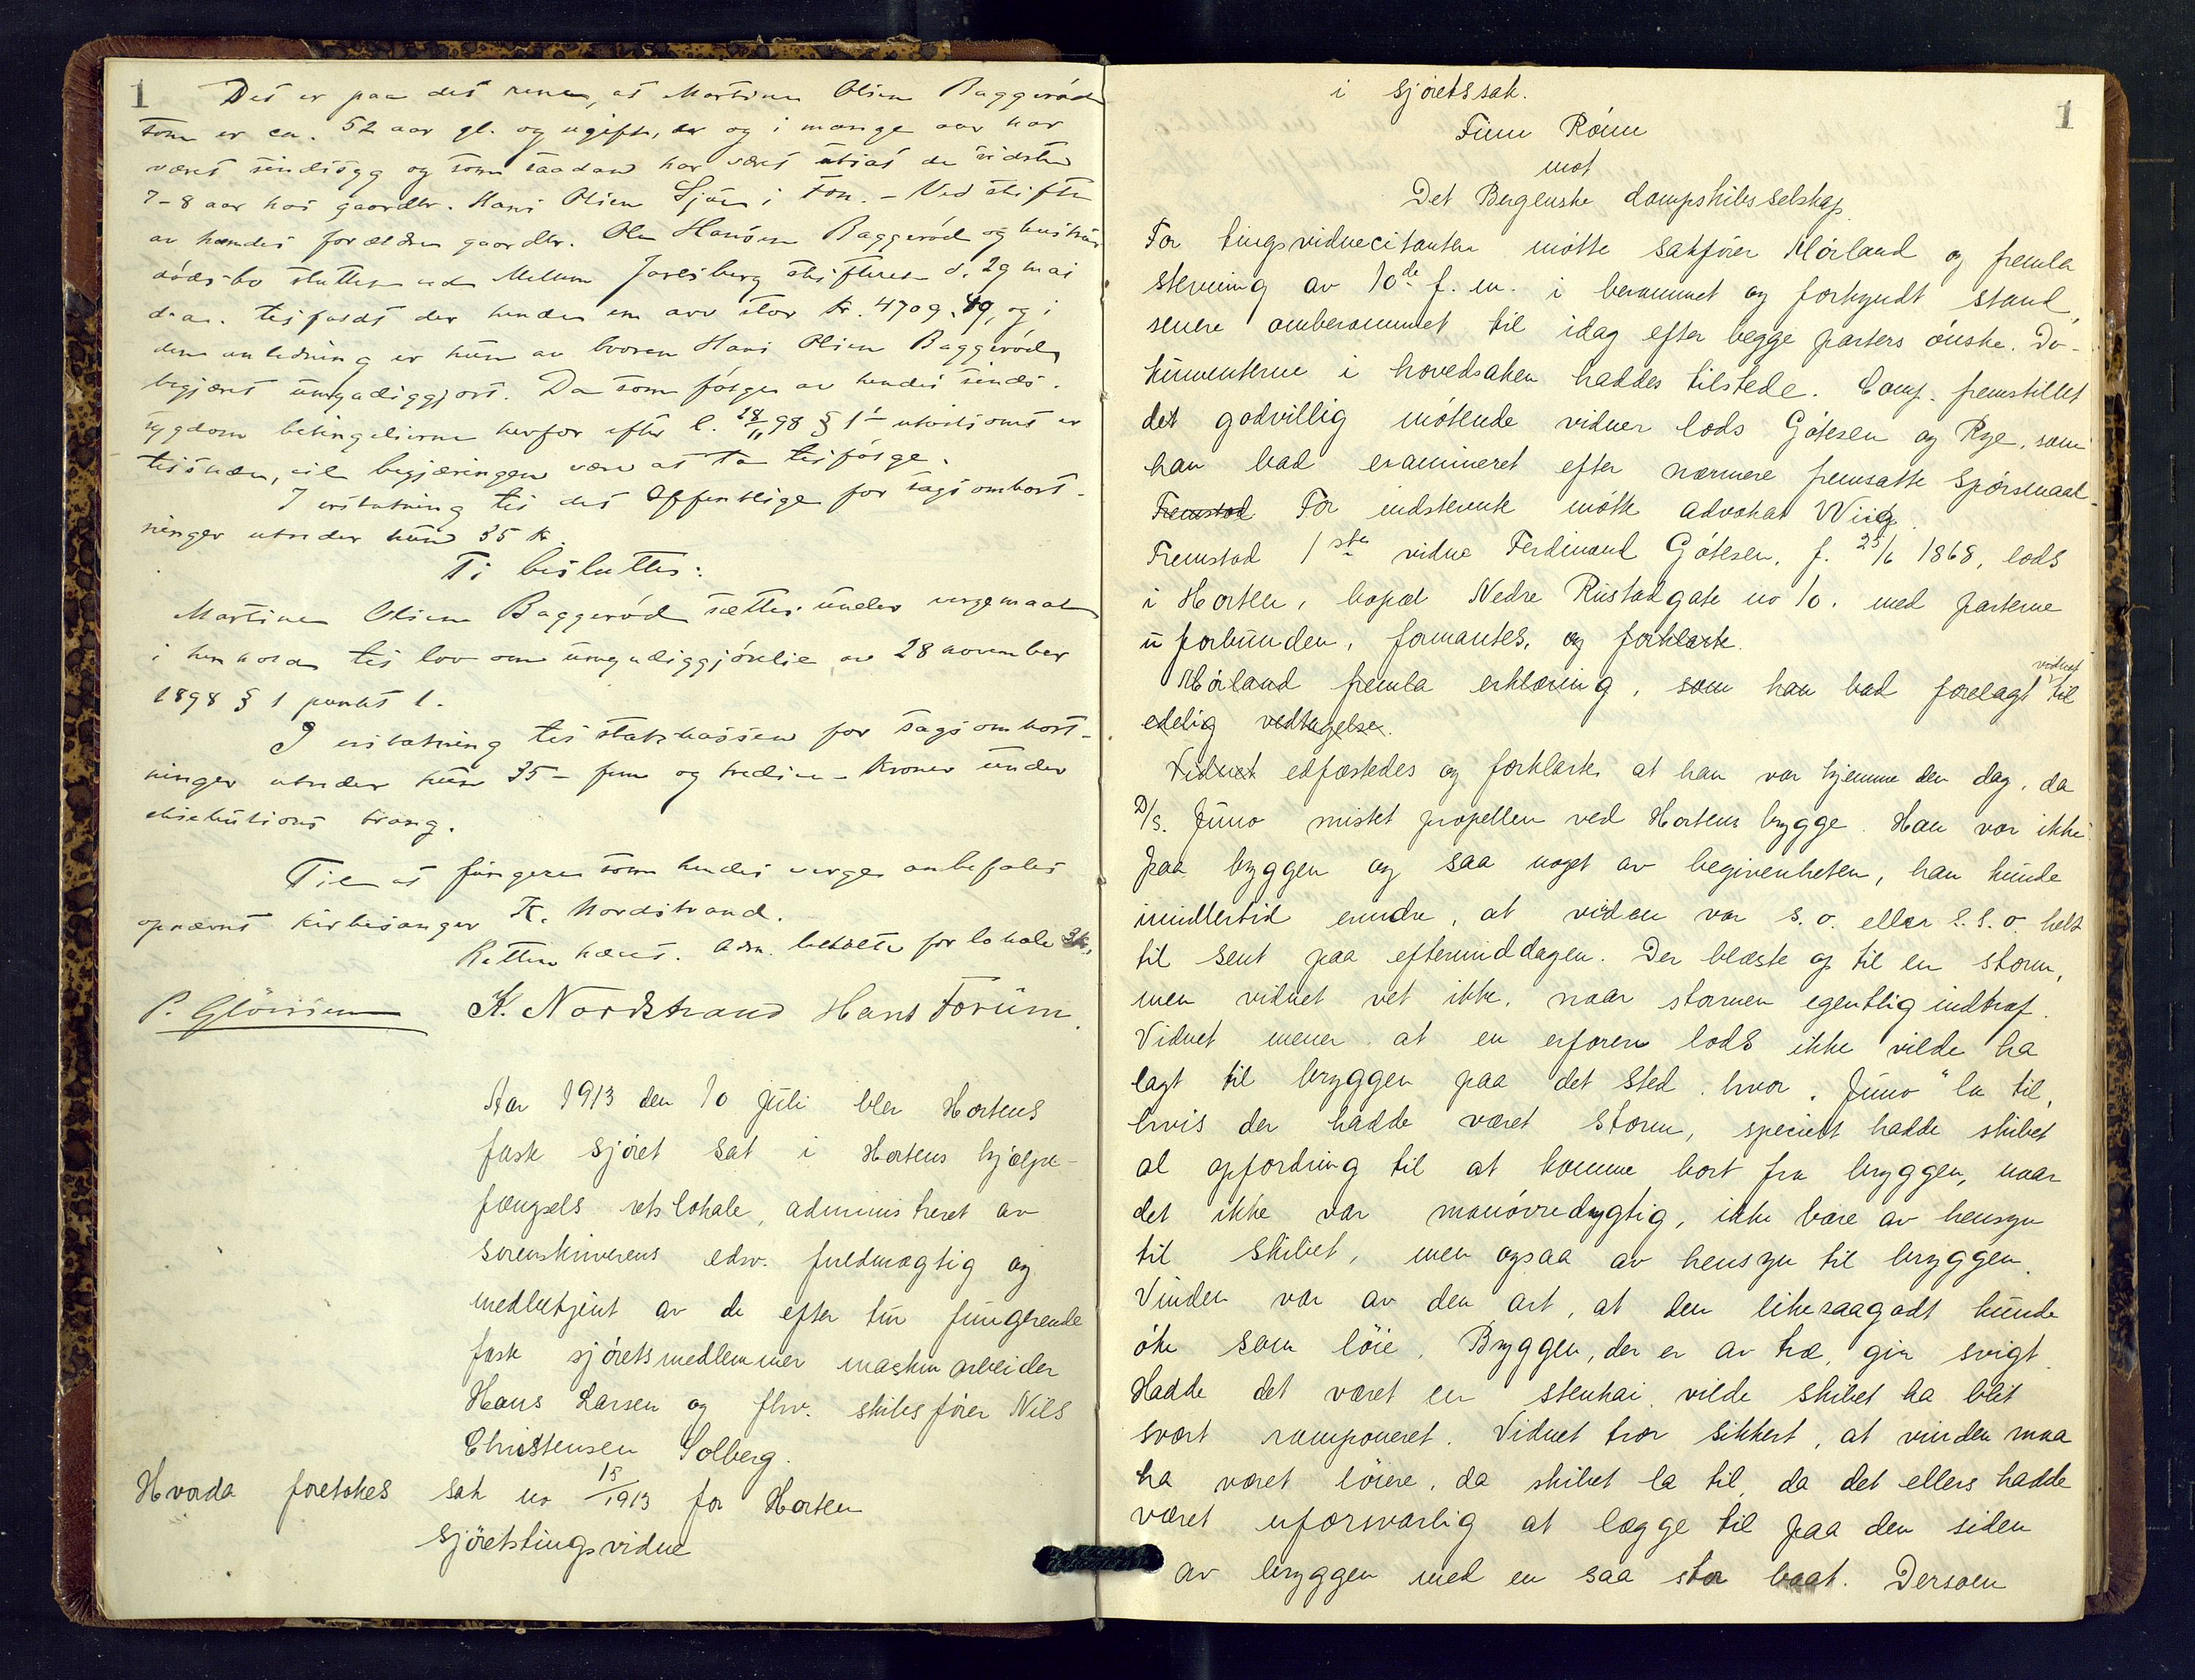 1
Det er paa det rene, at Martine Olsen Baggerød
som er ca. 52 aar gl. og ugift, der og i mange aar har
været sindssyg og som saadan har været utsat de sidste
7-8 aar hos gaardbr. Hans Olsen Sjue i Fon. – Ved skifte
av hendes forældre gaardbr. Ole Hansen Baggerød og hustrus
dødsbo sluttet ved Mellem Jarlsberg skifteret d. 29 mai
d.aa. tilfaldt der hende en arv stor kr. 4709,49, og i
den anledning er hun av broren Hans Olsen Baggerød
begjæret umyndiggjort. Da som følge av hendes sinds-
sygdom betingelserne herfor efter l. 28/11 98 § 1 – utvilsomt er
tilstede, vil begjæringen være at ta tilfølge.
I erstatning til det offentlige for sagsomkost-
ninger utreder hun 35 kr.
Ti besluttes:
Martine Olsen Baggerød sættes under vergemaal
i henhold til lov om umyndiggjørelse av 28 november
1898 § 1 punkt 1.
I erstatning til statskassen for sagsomkost-
ninger utreder hun 35 – fem og tredive – kroner under
eksekutions tvang.
Til at fungere som hendes verge anbefales
opnævnt kirkesanger K. Nordstrand.
Retten hævet. Adm. betalte for lokale 3 kr.
P. Glörsen K. Nordstrand Hans Forum.
Aar 1913 den 10 juli blev Hortens
faste sjøret sat i Hortens hjælpe-
fængsels retslokale, administreret av
sorenskriverens edsv. fuldmægtig og
medbetjent av de efter tur fungerende
faste sjøretsmedlemmer maskinarbeider
Hans Larsen og fhv. skibsfører Nils
Christensen Solberg.
Hvorda foretokes sak no 15/1913 for Horten
sjøretstingsvidne
1
i sjøretssak.
Finn Rönn
mot
Det Bergenske dampskibsselskap.
For tingsvidnecitanten møtte sakfører Mørland og fremla
stevning av 10de f. m. i berammet og forkyndt stand,
senere omberammet til idag efter begge parters ønske. Do-
kumenterne i hovedsaken haddes tilstede. Comp. fremstillet
det godvillig møtende vidner lods Gøtesen og Rye, som
han bad examineret efter nærmere fremsatte spørsmaal.
Fremstod For indstevnte møtte advokat Wiig.
Fremstod 1ste vidne Ferdinand Gøtesen, f. 25/6 1868, lods
i Horten, bopæl Nedre Rustadgate no 10, med parterne
uforbunden, formantes, og forklarte.
Mørland fremla erklæring, som han bad forelagt vidnet til
edelig vedtagelse.
Vidnet edfæstedes og forklarte at han var hjemme den dag, da
D/S. Juno mistet propellen ved Hortens brygge. Han var ikke
paa bryggen og saa noget av begivenheten, han kunde
imidlertid erindre, at vinden var s.o. eller s.s.o. helt
til sent paa eftermiddagen. Der blæste op til en storm,
men vidnet vet ikke, naar stormen egentlig indtraf.
Vidnet mener at en erfaren lods ikke vilde ha
lagt til bryggen paa det sted hvor „Juno" la til,
hvis der hadde været storm, specielt hadde skibet
al opfordring til at komme bort fra bryggen, naar
det ikke var manøvredygtig, ikke bare av hensyn
til skibet, men ogsaa av hensyn til bryggen.
Vinden var av den art, at den likesaagodt kunde
øke som løie. Bryggen, der er av træ, gir svigt.
Hadde det været en stenkai vilde skibet ha blit
svært ramponeret. Vidnet tror sikkert, at vinden maa
ha været løiere, da skibet la til, da det ellers hadde
været uforsvarlig at lægge til paa den siden
av bryggen med en saa stor baat. Dersom